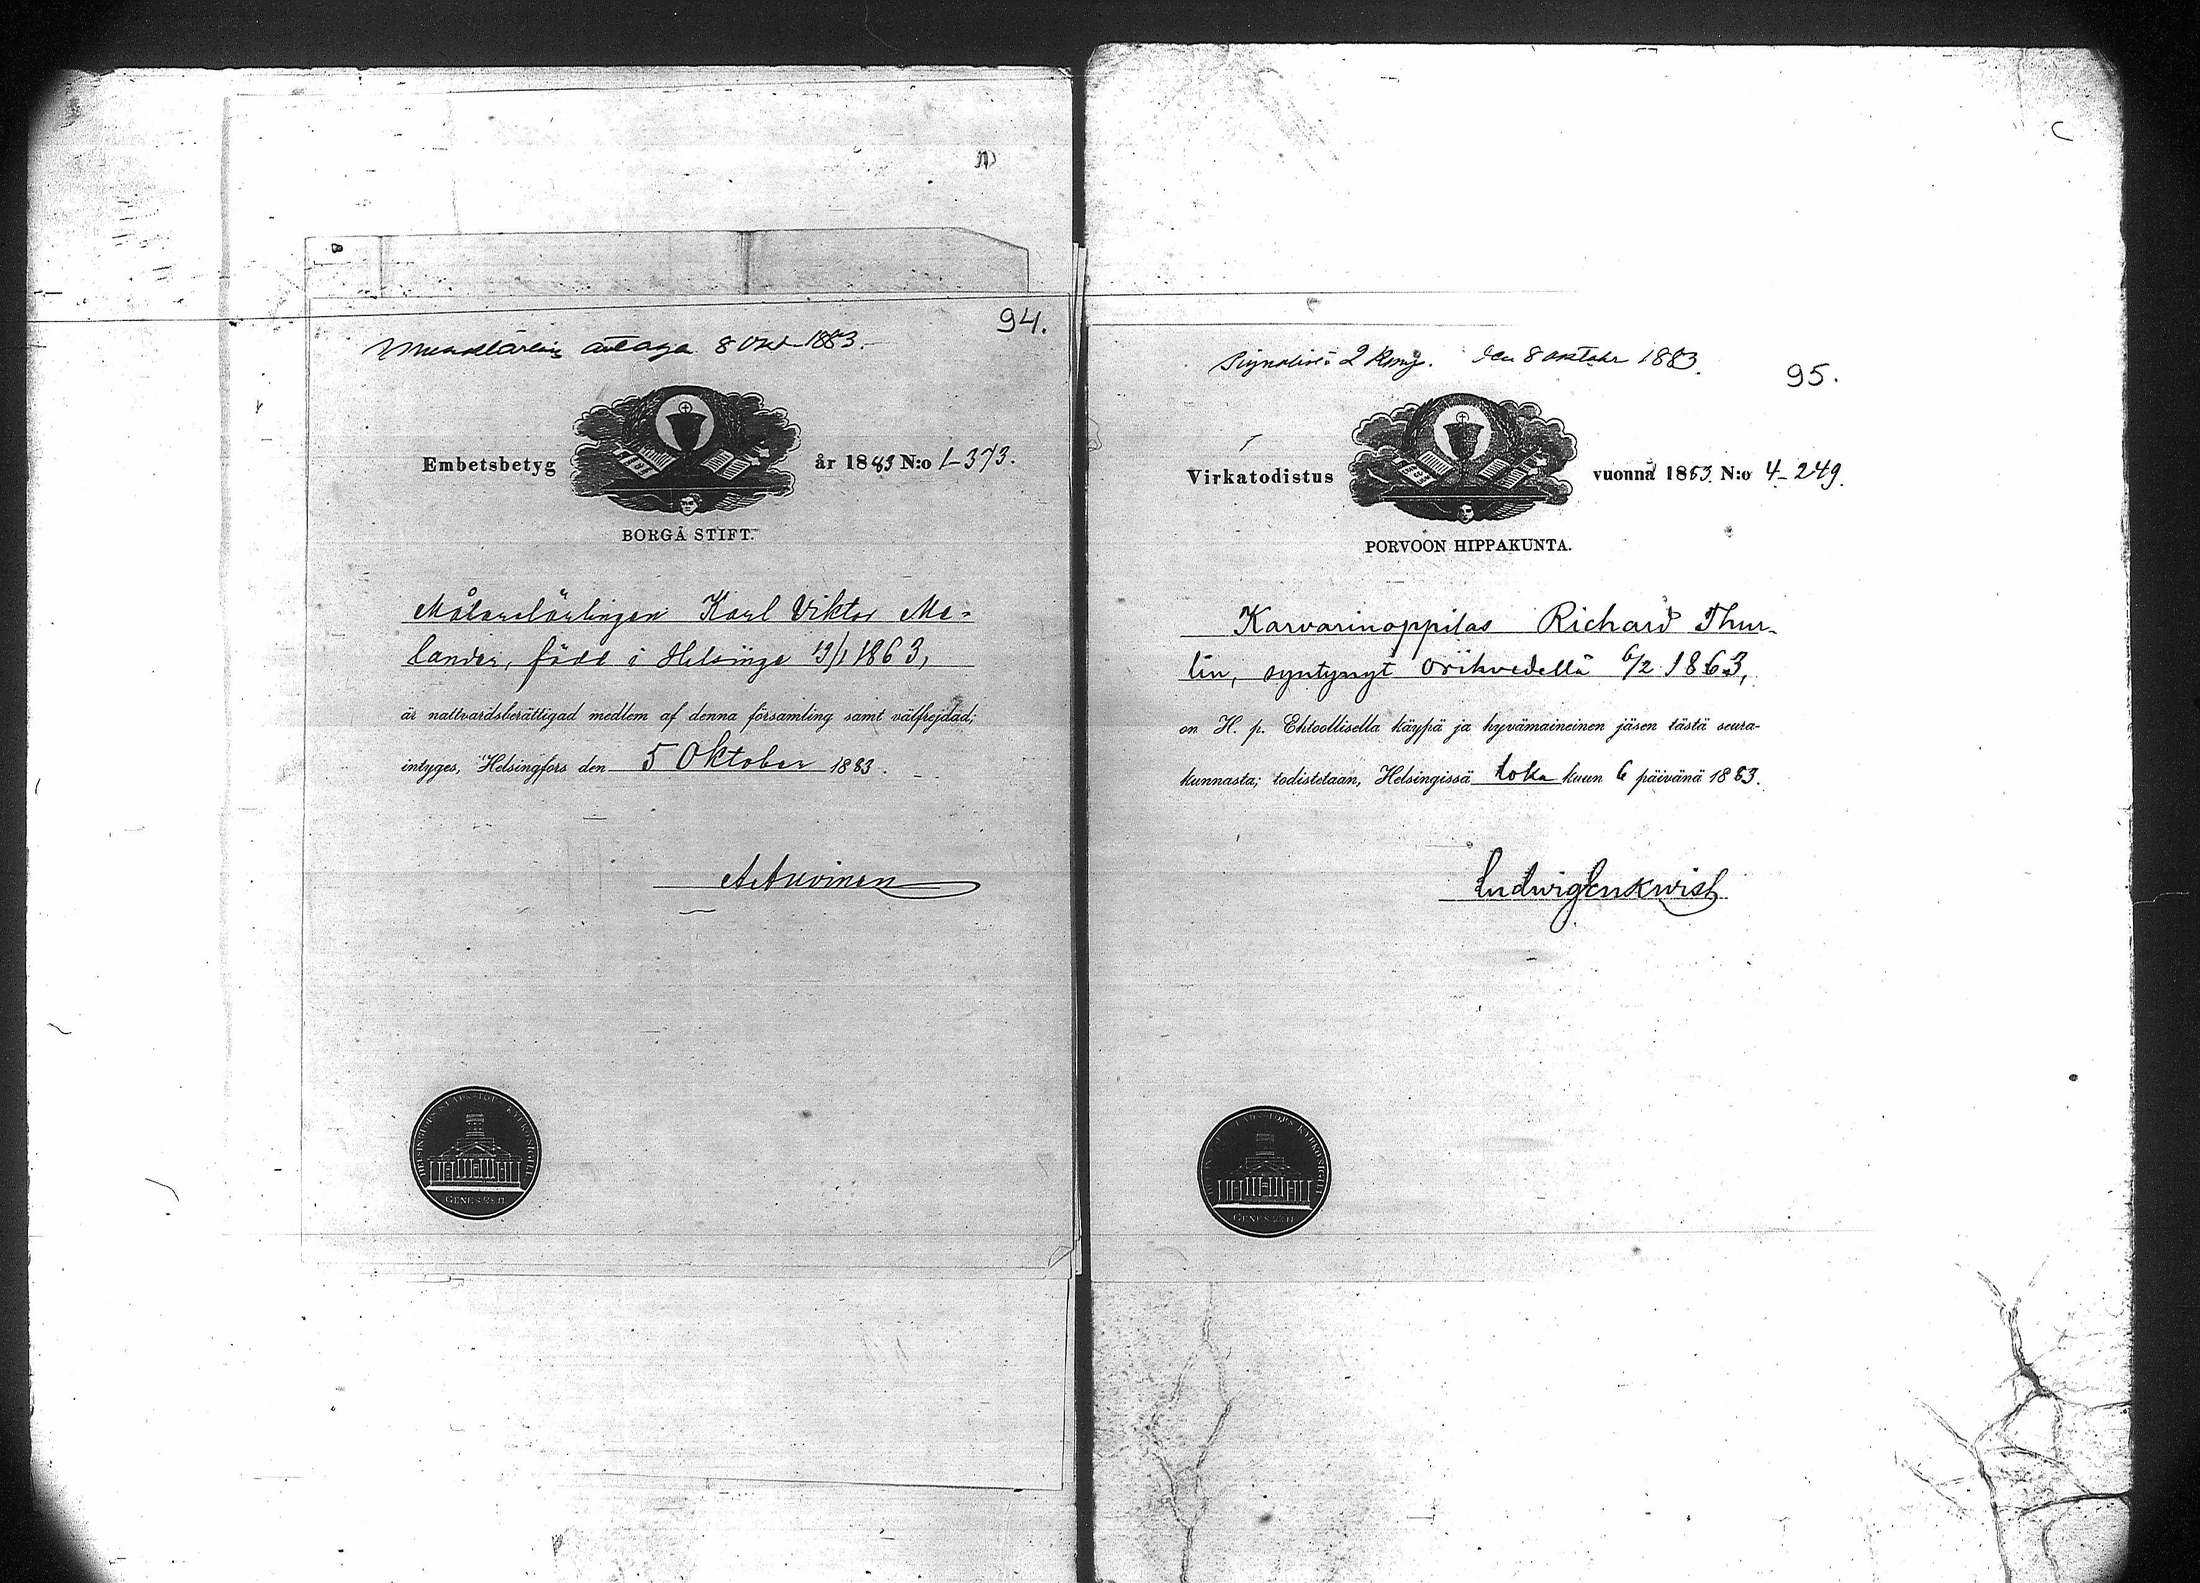 94.
8 Okt 1883.
Embetsbetyg år 1883 N:o 1-373.
BORGÅ STIFT.
Målarelärlingen Karl Viktor Me=
lander, född i Helsinge 19/1 1863,
är nattvardsberättigad medlem af denna församling samt välfrejdad;
intyges, Helsingfors den 5 Oktober 1883.
GENES. 28.17.
den 8 oktobr 1883.
95.
Virkatodistus vuonna 1883 N:o 4-249.
PORVOON HIPPAKUNTA.
Karvarinoppilas Richard Thur-
lin, syntynyt Orihvedellä 6/2 1863,
on H. p. Ehtoollisella käypä ja hyvämaineinen jäsen tästä seura-
kunnasta; todistetaan, Helsingissä loka kuun 6 päivänä 1883.
Ludvig Lenkwist